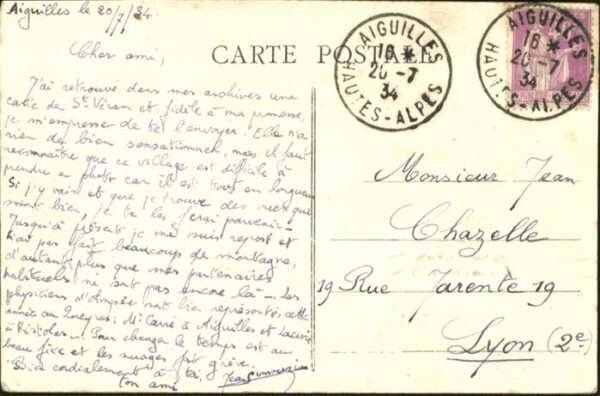 Aiguilles le 20/7/34.
CARTE POSTALE
AIGUILLES
16 *
20-7
34
HAUTES-ALPES
AIGUILLES
16 *
20-7
34
HAUTES-ALPES
Cher ami,
J'ai retrouvé dans mes archives une
carte de St Véran et fidèle à ma promesse,
je m'empresse de te l'envoyer. Elle n'a
rien de bien sensationnel, mais il faut
reconnaître que ce village est difficile à
prendre en photo car il est tout en longueur
Si j'y vais et que je trouve des vues qui
soient bien, je te les ferai parvenir.
Jusqu'à présent je me suis reposé et
n'ai pas fait beaucoup de montagne,
d'autant plus que mes partenaires
habituels ne sont pas encore là - Les
physiciens d'Ampère sont bien représentés cette
année au Queyras : Mr Carré à Aiguilles et
à Ristolas... Pour changer le temps est au
beau fixe et les nuages font grève.
Bien cordialement à toi,
ton ami
Monsieur Jean
Chazelle
19 Rue Tarente 19
Lyon (2e)